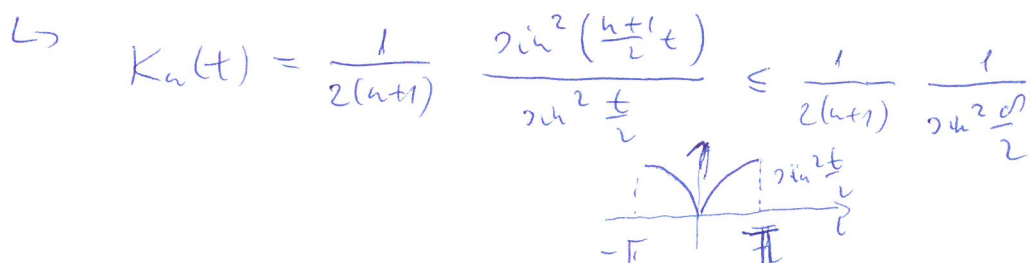 ↳ Kₙ(t) = 1/(2(n+1)) · sin²((n+1)/2 t) / sin² t/2 ≤ 1/(2(n+1)) · 1/(sin² δ/2)
sin² t/2
t
-π π